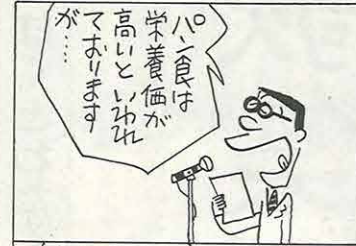 パン食は
栄養価が
高いといわれ
ております
が……